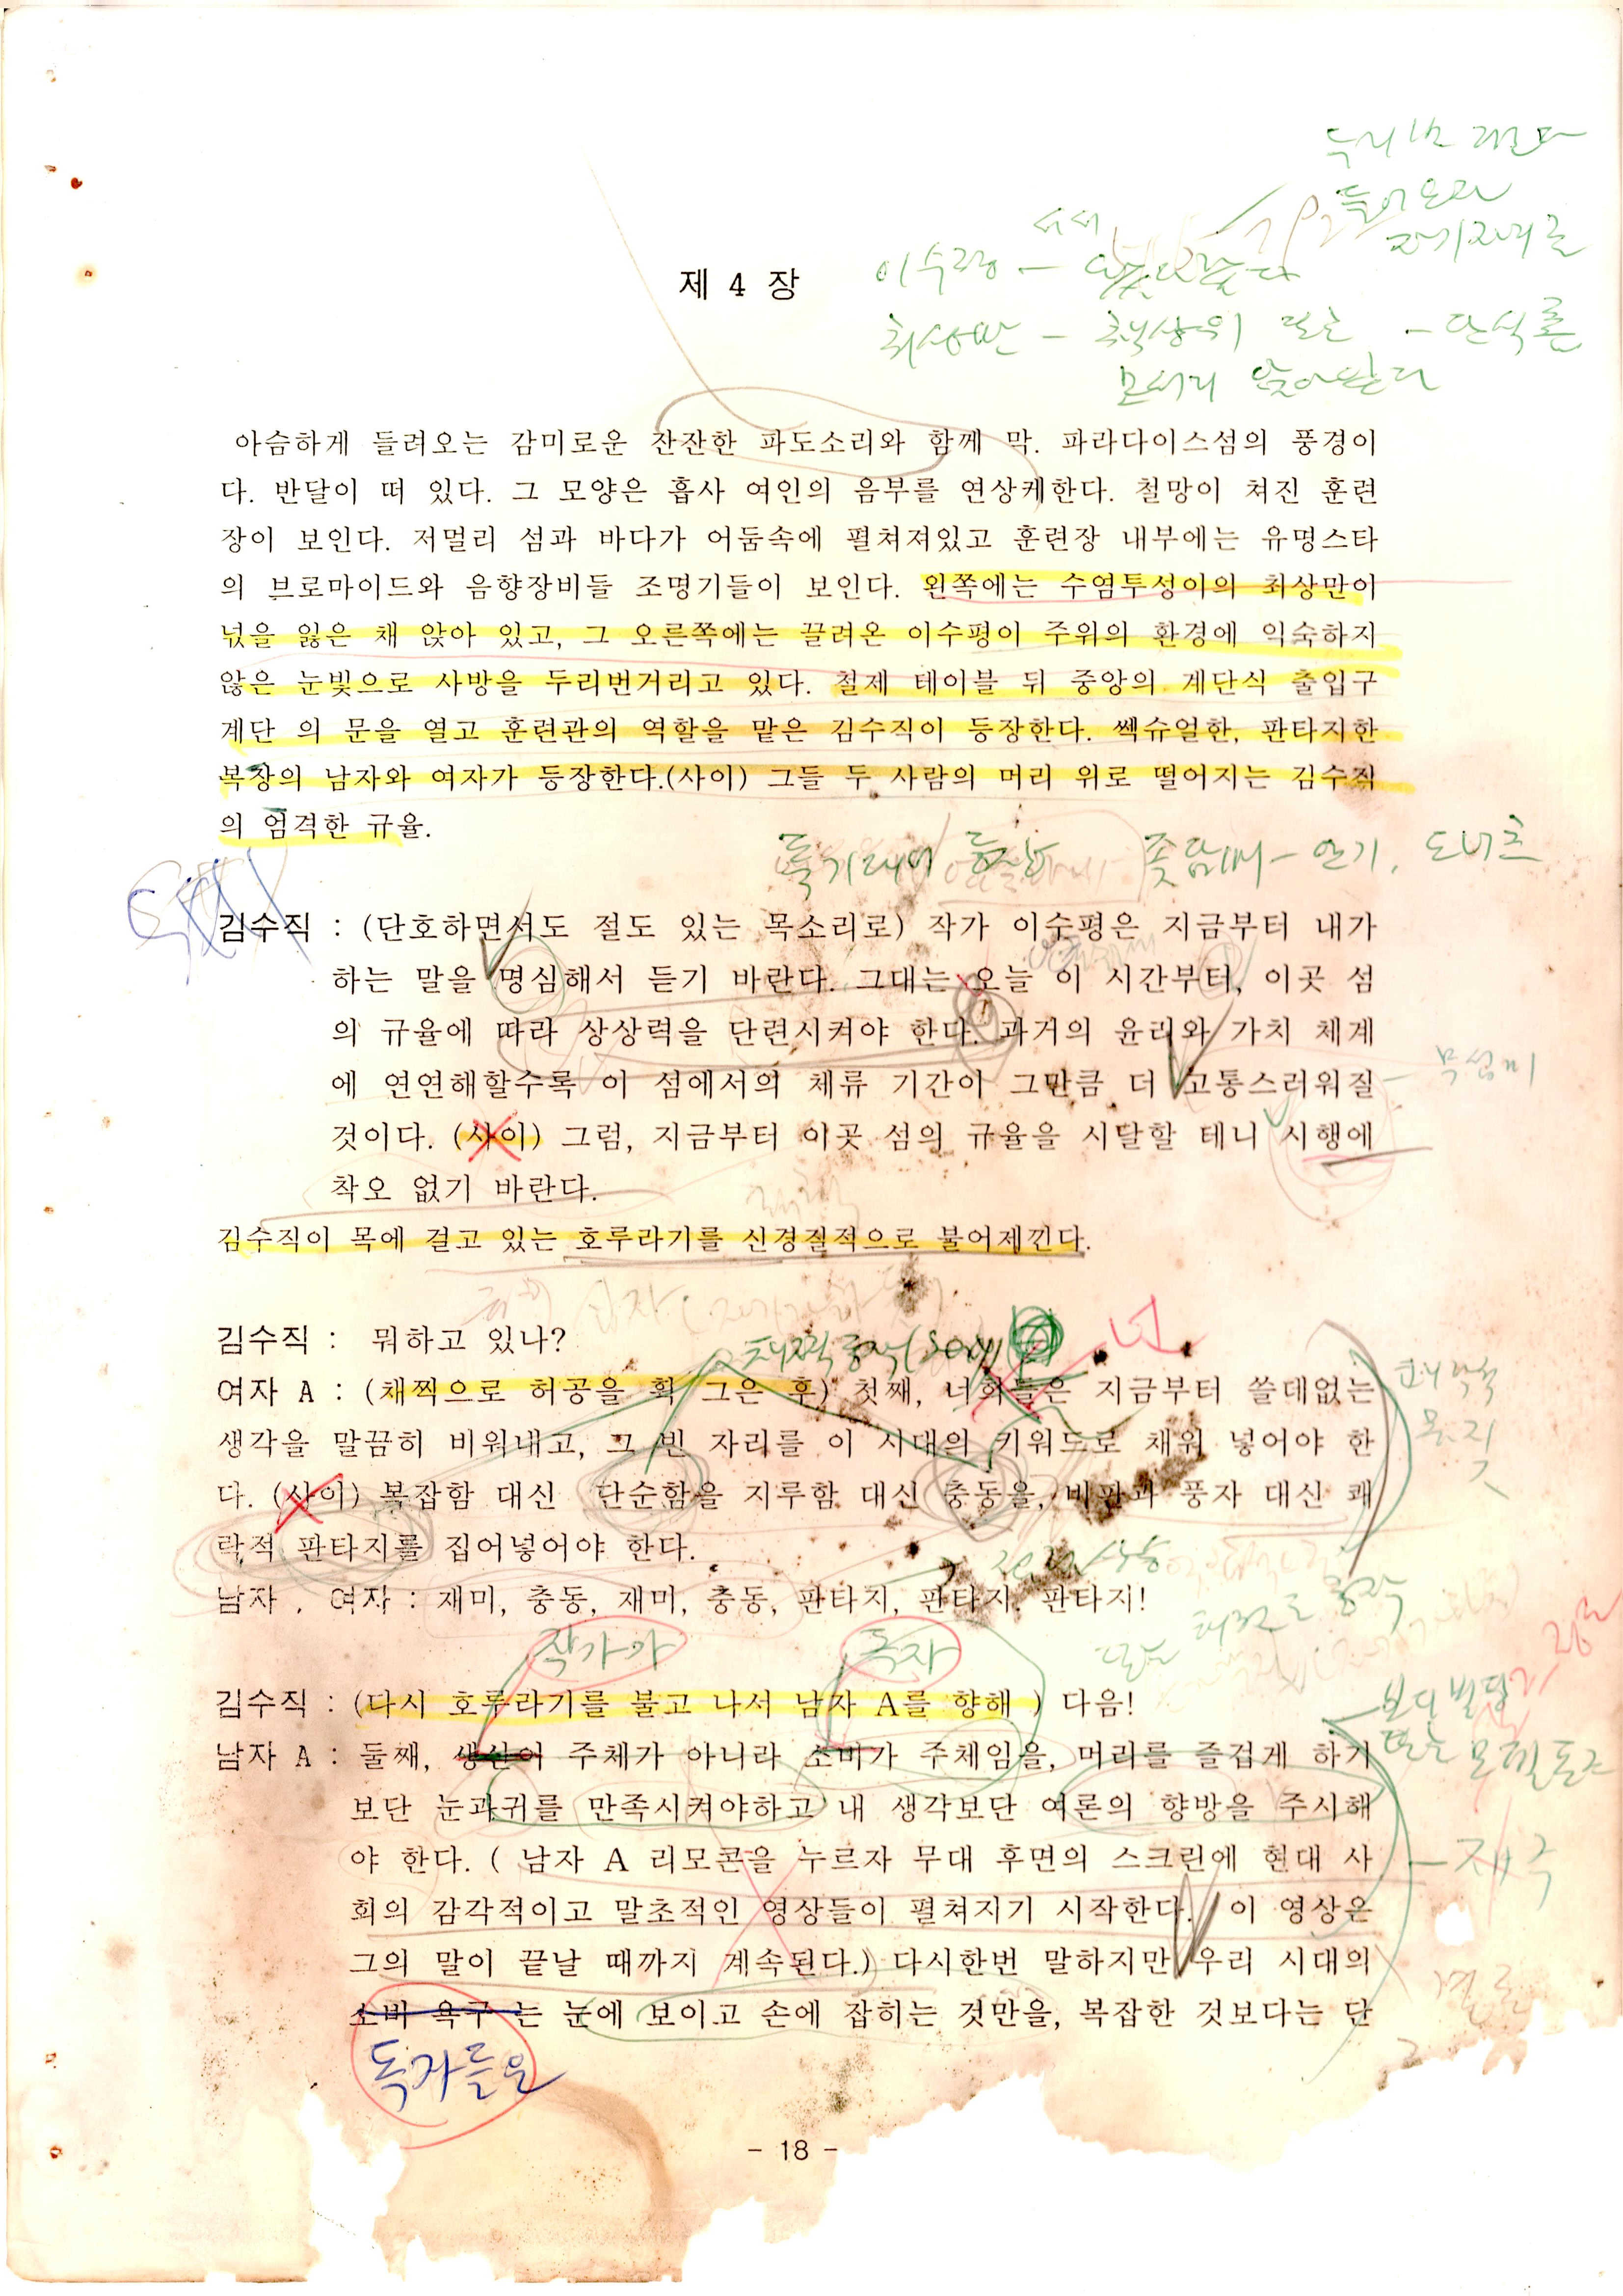 두리번 거린다
들어오고
자기자리로
서서
이수평 -
제 4 장
최상만 - 책상위 또는 - 단식론
모서리 앉아있다
아슴하게 들려오는 감미로운 잔잔한 파도소리와 함께 막. 파라다이스섬의 풍경이
다. 반달이 떠 있다. 그 모양은 흡사 여인의 음부를 연상케한다. 철망이 쳐진 훈련
장이 보인다. 저멀리 섬과 바다가 어둠속에 펼쳐져있고 훈련장 내부에는 유명스타
의 브로마이드와 음향장비들 조명기들이 보인다. 왼쪽에는 수염투성이의 최상만이
넋을 잃은 채 앉아 있고, 그 오른쪽에는 끌려온 이수평이 주위의 환경에 익숙하지
않은 눈빛으로 사방을 두리번거리고 있다. 철제 테이블 뒤 중앙의 계단식 출입구
계단 의 문을 열고 훈련관의 역할을 맡은 김수직이 등장한다. 쎅슈얼한, 판타지한
복장의 남자와 여자가 등장한다.(사이) 그들 두 사람의 머리 위로 떨어지는 김수직
의 엄격한 규율.
등장 좆담배 - 연기, 도너츠
김수직 : (단호하면서도 절도 있는 목소리로) 작가 이수평은 지금부터 내가
하는 말을 명심해서 듣기 바란다. 그대는 오늘 이 시간부터, 이곳 섬
의 규율에 따라 상상력을 단련시켜야 한다. 과거의 윤리와 가치 체계
에 연연해할수록 이 섬에서의 체류 기간이 그만큼 더 고통스러워질
것이다. (사이) 그럼, 지금부터 이곳 섬의 규율을 시달할 테니 시행에
착오 없기 바란다.
김수직이 목에 걸고 있는 호루라기를 신경질적으로 불어제낀다.
김수직 : 뭐하고 있나?
채찍 동작 넌
여자 A : (채찍으로 허공을 휙 그은 후) 첫째, 너희들은 지금부터 쓸데없는
생각을 말끔히 비워내고, 그 빈 자리를 이 시대의 키워드로 채워 넣어야 한
다. (사이) 복잡함 대신 단순함을 지루함 대신 충동을, 비판과 풍자 대신 쾌
락적 판타지를 집어넣어야 한다.
남자 , 여자 : 재미, 충동, 재미, 충동, 판타지, 판타지, 판타지!
작가가 독자
또는 동작
김수직 : (다시 호루라기를 불고 나서 남자 A를 향해 ) 다음!
보디빌딩
또는
남자 A : 둘째, 생산이 주체가 아니라 소비가 주체임을, 머리를 즐겁게 하기
보단 눈과귀를 만족시켜야하고 내 생각보단 여론의 향방을 주시해
야 한다. ( 남자 A 리모콘을 누르자 무대 후면의 스크린에 현대 사
회의 감각적이고 말초적인 영상들이 펼쳐지기 시작한다. 이 영상은
그의 말이 끝날 때까지 계속된다.) 다시한번 말하지만 우리 시대의
소비 욕구 는 눈에 보이고 손에 잡히는 것만을, 복잡한 것보다는 단
독자들은
- 18 -